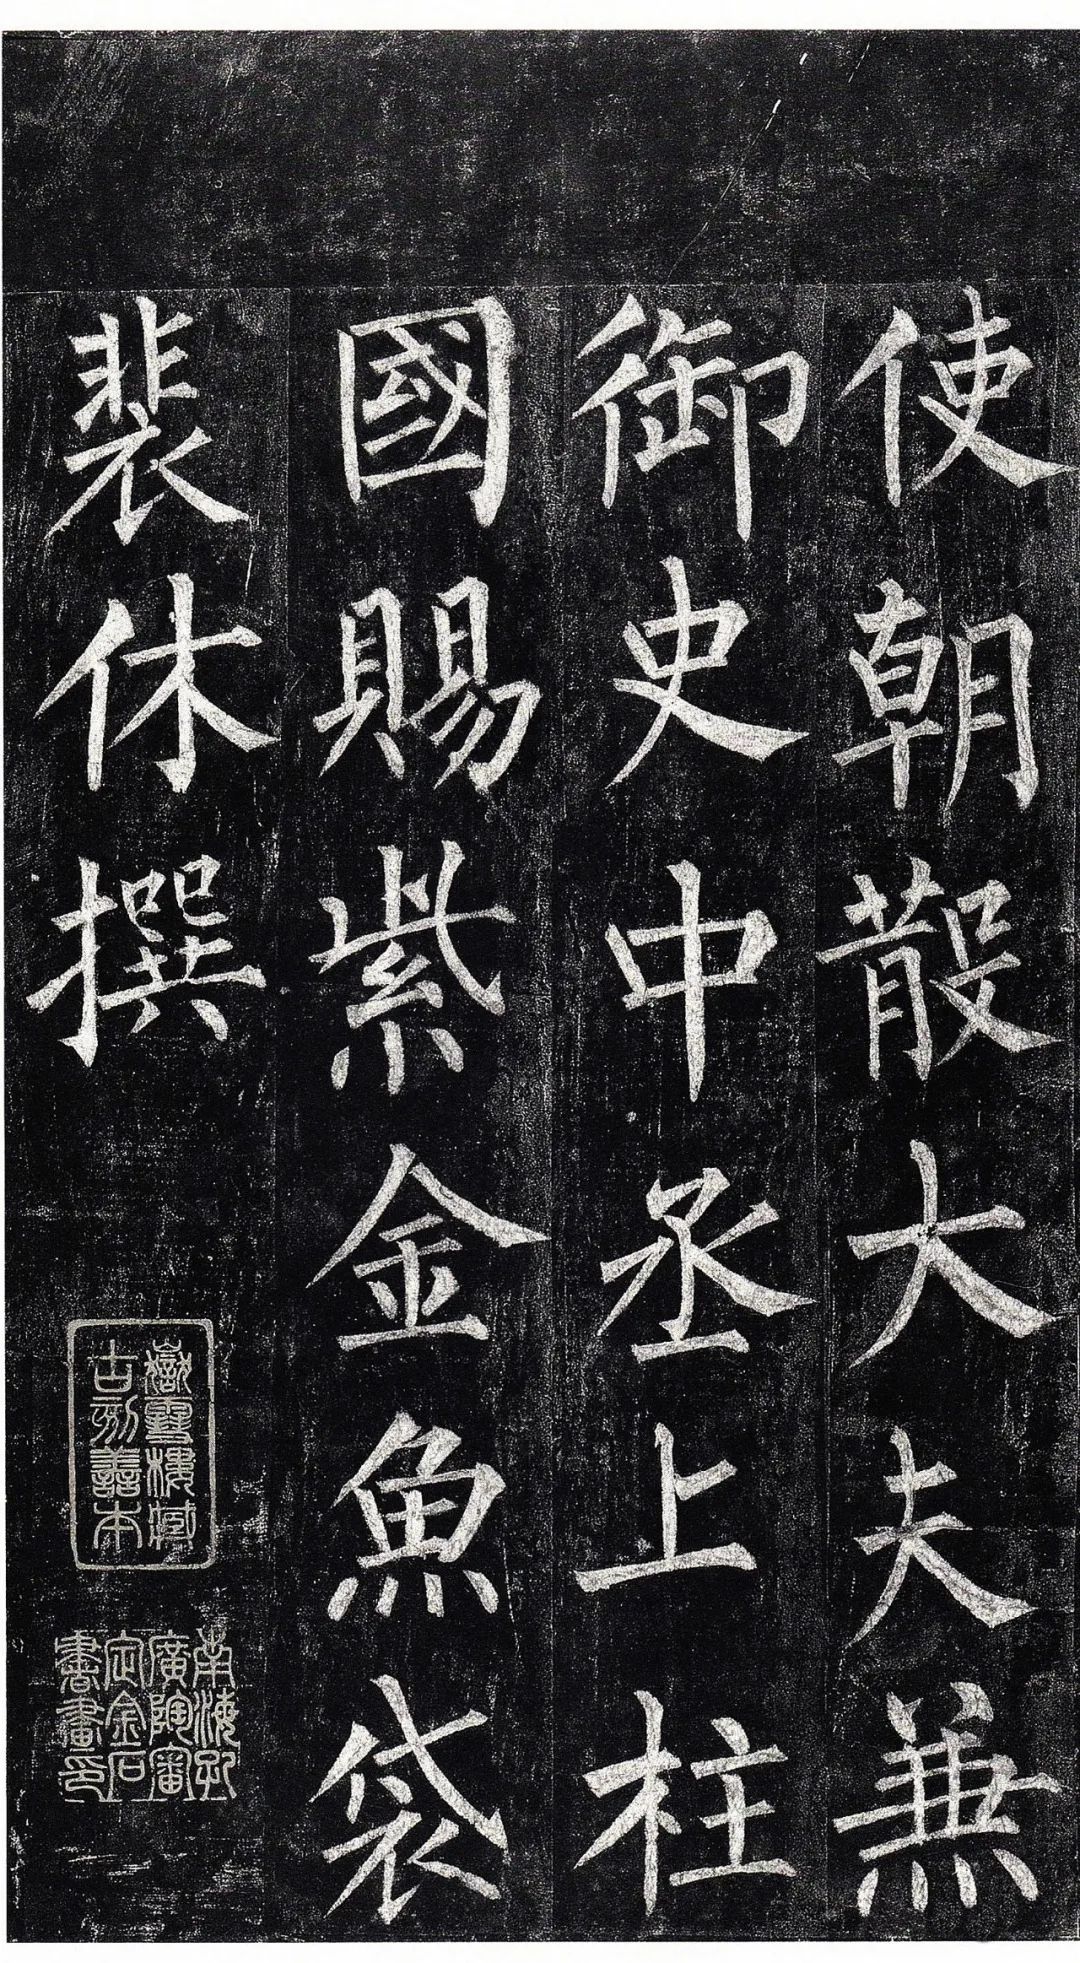 使朝散大夫兼
御史中丞上柱
國賜紫金魚袋
裴休撰
嶽雪樓藏
古刻善本
南海孔
廣陶審
定金石
書畫印